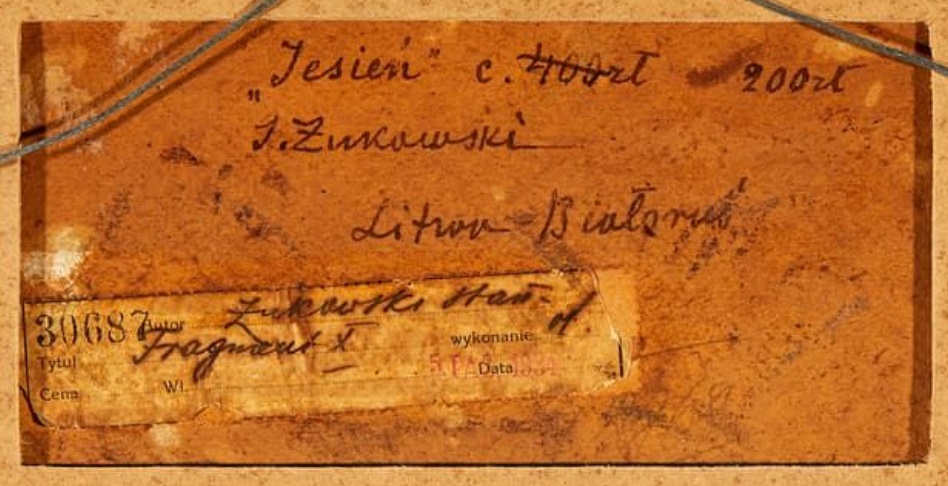 „Jesień" c. 400zł 200zł
S. Żukowski
Litwa Białoruś
30687 Autor Żukowski Stan.
Fragment X wykonanie
Tytuł 5 PAŹ Data
Cena Wł.